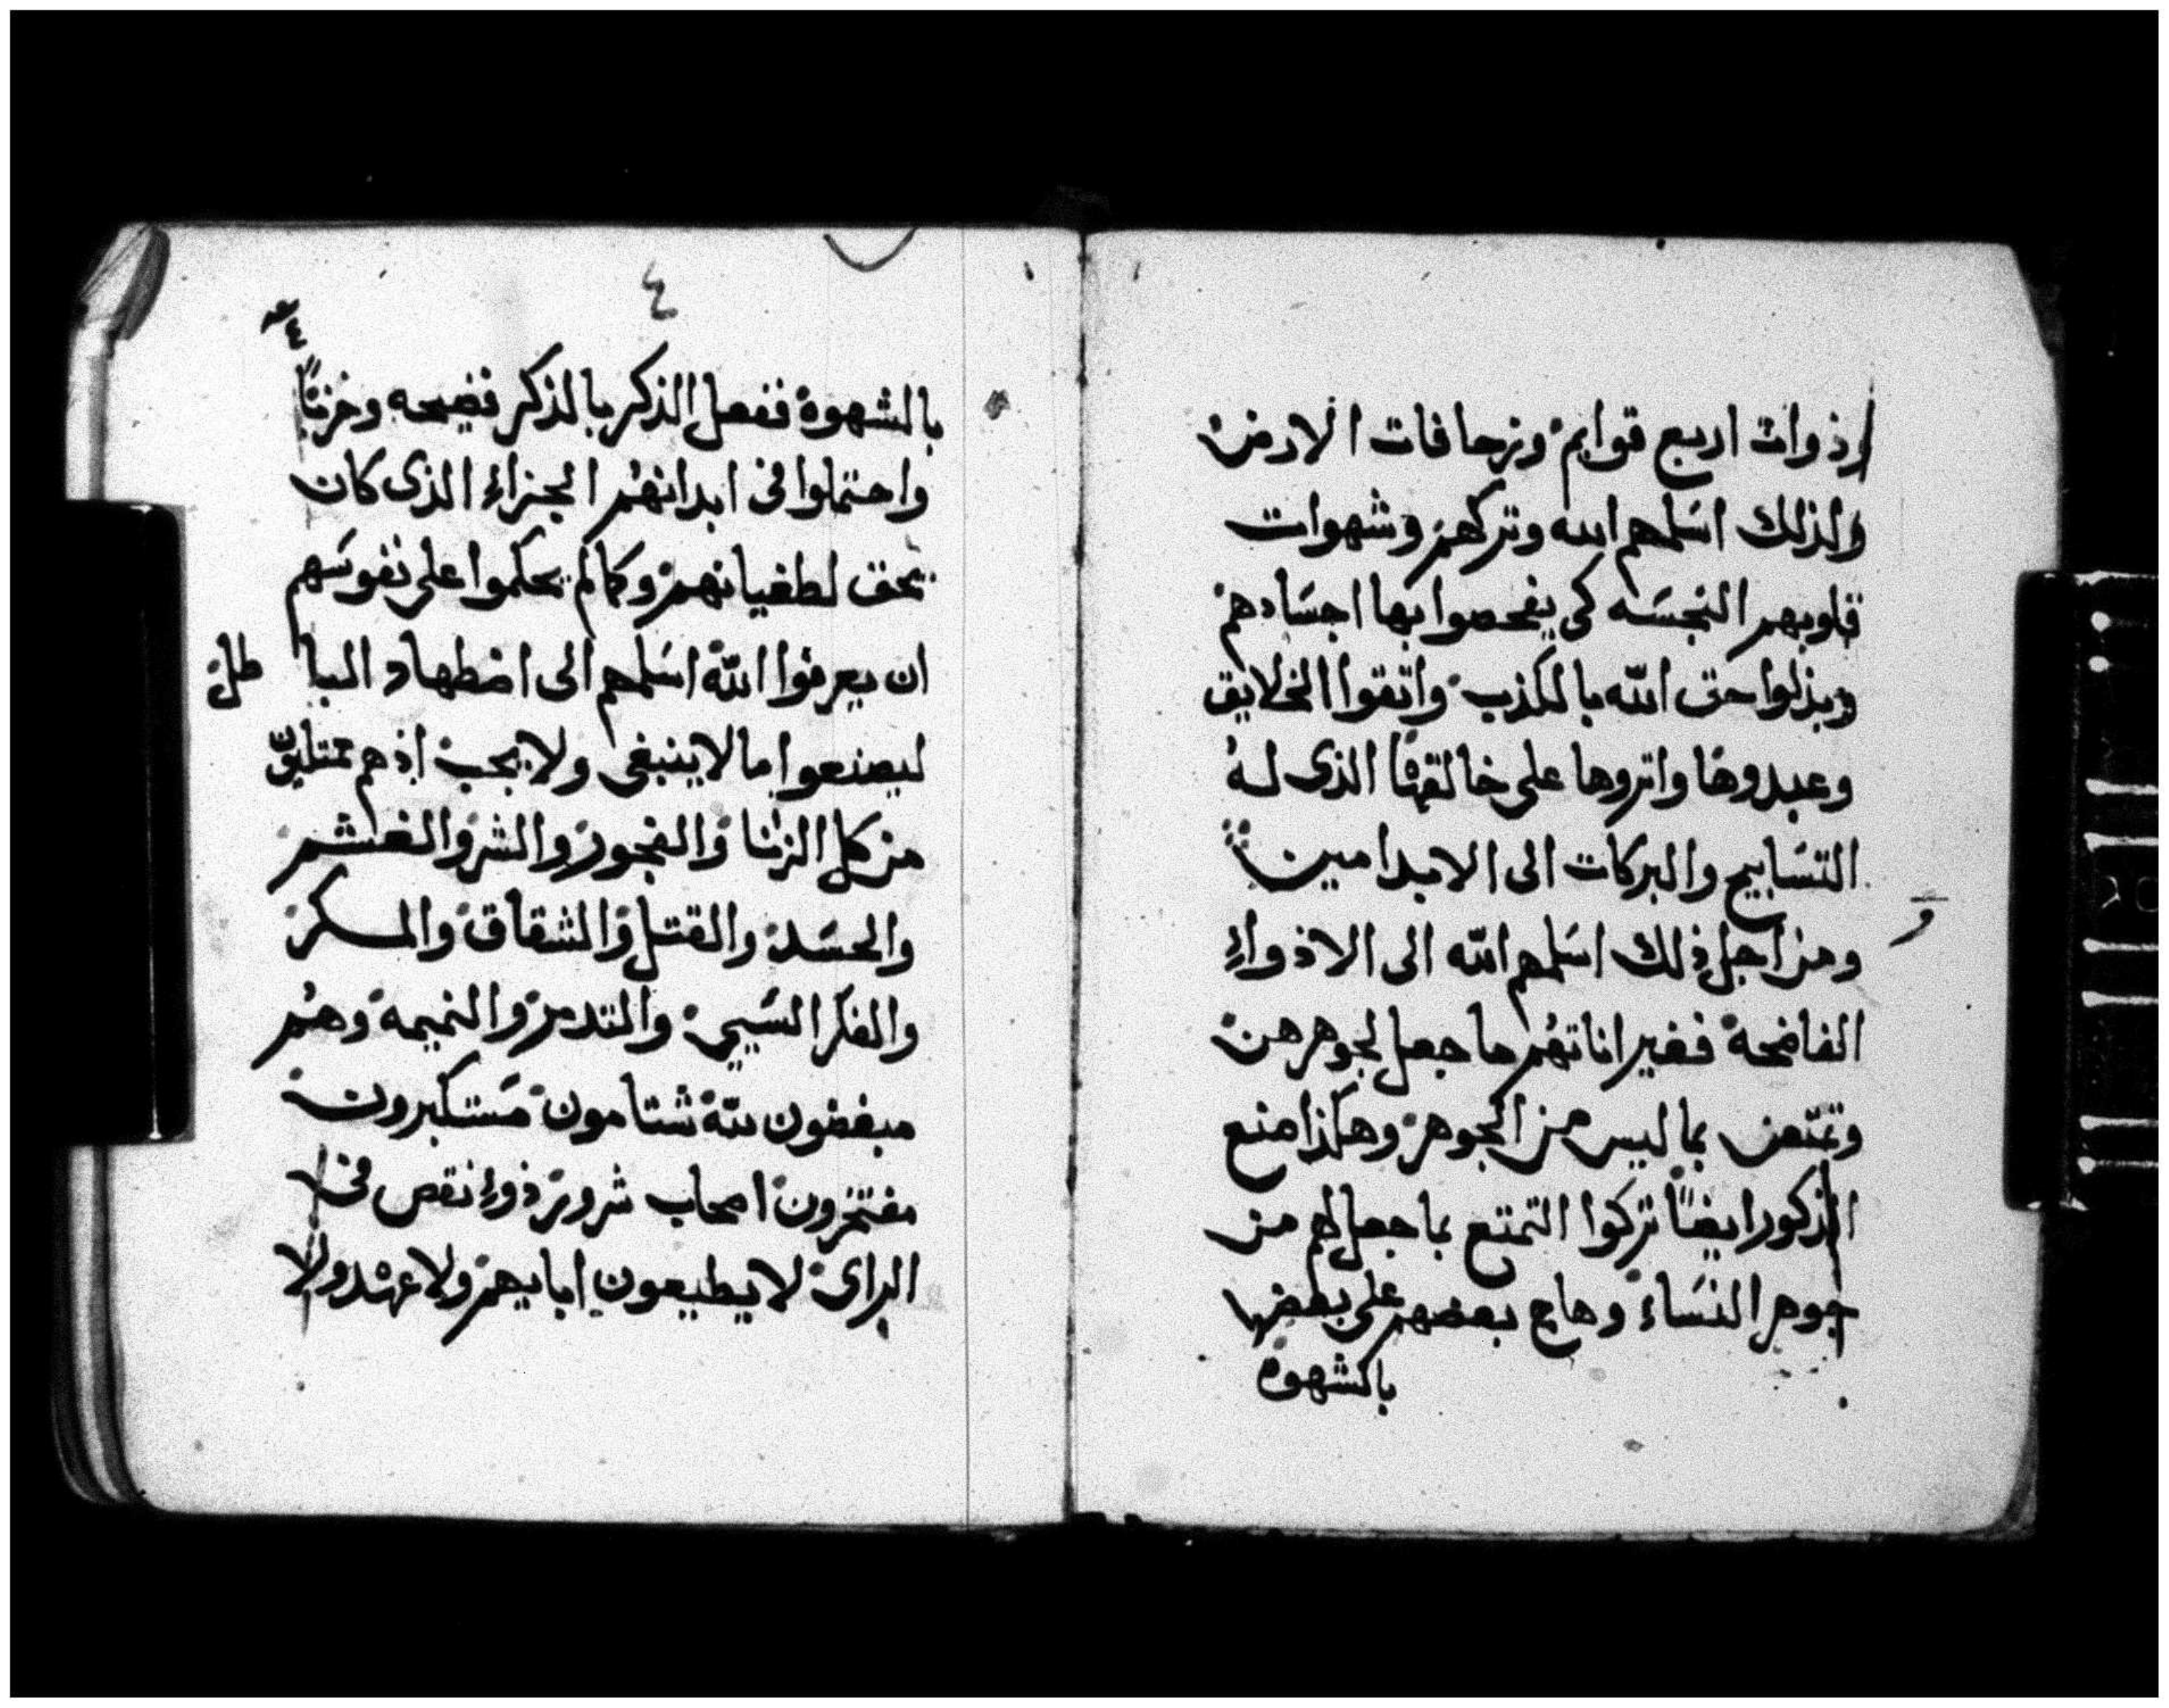 ذوات اربع قوايم وزحافات الارض
ولذلك اسلمهم الله وتركهم وشهوات
قلوبهم النجسه كى يفحصوا بها اجسادهم
وبذلوا حق الله بالكذب واتقوا الخلايق
وعبدوها واثروها على خالقها الذى له
التسابيح والبركات الى الابد امين
و
ومن اجل ذلك اسلمهم الله الى الادواء
الفاضحة فغير اناثهم ما جعل لجوهرهن
وتمتعن بما ليس من الجوهر وهكذا منع
الذكور ايضاً تركوا التمتع بما جعل لهم من
جوهر النساء وهاج بعضهم على بعض
بالشهوة
٤
بالشهوة ففعل الذكر بالذكر فضيحه وخزياً
واحتملوا فى ابدانهم الجزاء الذى كان
يحق لطغيانهم وكما لم يحكموا على نفوسهم
ان يعرفوا الله اسلمهم الى اضطهاد البا طل
ليصنعوا ما لا ينبغى ولا يجب اذ هم ممتليين
من كل الزنا والفجور والشر والغش
والحسد والقتل والشقاق والمكر
والفكر السيي والتدمر والنميمة وهم
مبغضون لله شتامون مستكبرون
مفتخرون اصحاب شرور ذوا نقص فى
الراى لا يطيعون اباييهم ولا عهد ولا